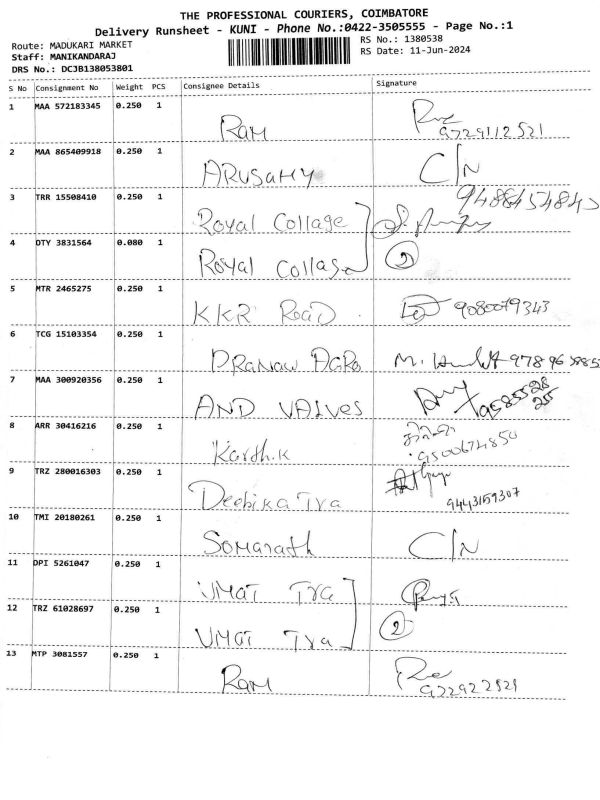 THE PROFESSIONAL COURIERS, COIMBATORE
Delivery Runsheet - KUNI - Phone No.:0422-3505555 - Page No.:1
Route: MADUKARI MARKET RS No.: 1380538
Staff: MANIKANDARAJ RS Date: 11-Jun-2024
DRS No.: DCJB138053801
S No Consignment No Weight PCS Consignee Details Signature
1 MAA 572183345 0.250 1 Ram 9729112521
2 MAA 865409918 0.250 1 ARUSAMY C/N
3 TRR 15508410 0.250 1 Royal Collage
4 OTY 3831564 0.080 1 Royal Collage 2
5 MTR 2465275 0.250 1 KKR Road 9080079343
6 TCG 15103354 0.250 1 PRANAW AGRO
7 MAA 300920356 0.250 1 AND VALVES
8 ARR 30416216 0.250 1 Karthik 9500674850
9 TRZ 280016303 0.250 1 Deebika Tra 9443159307
10 TMI 20180261 0.250 1 Somanath C/N
11 DPI 5261047 0.250 1 UMAT Tra
12 TRZ 61028697 0.250 1 UMAT Tra 2
13 MTP 3081557 0.250 1 Ram